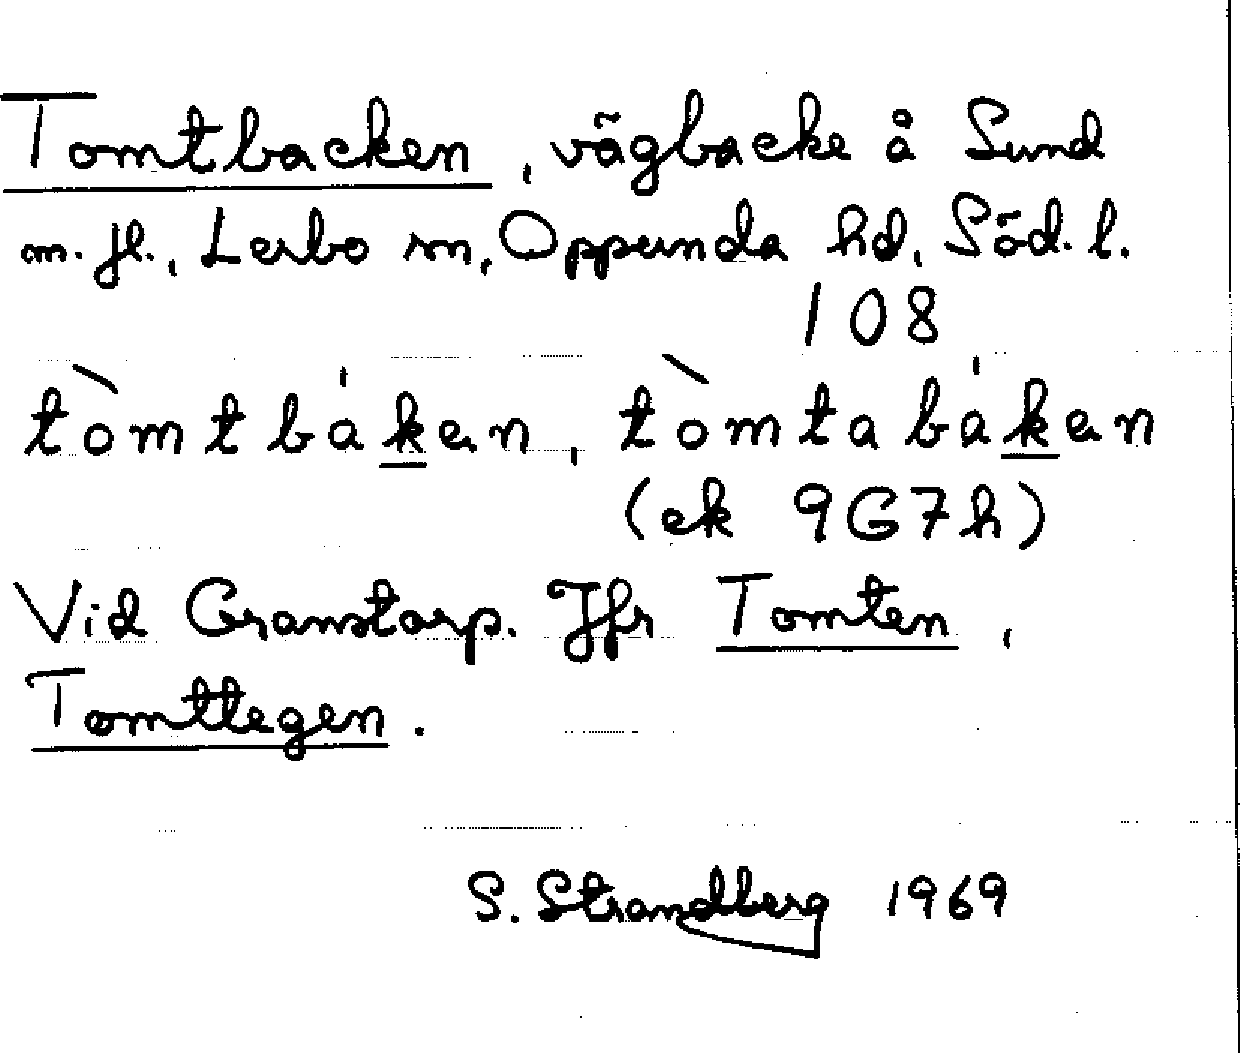 Tomtbacken, vägbacke å Sund
m. fl., Lerbo sn, Oppunda hd, Söd. l.
108
tòmtbáken, tòmtabáken
(ek 9G7h)
Vid Granstorp. Jfr Tomten,
Tomttegen.
S. Strandberg 1969